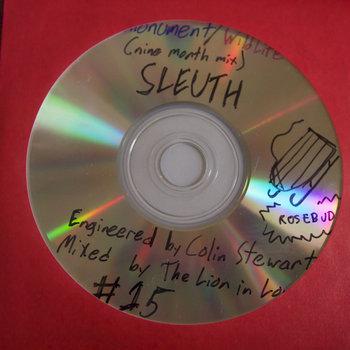 Monument/Wildlife
(nine month mix)
SLEUTH
ROSEBUD
Engineered by Colin Stewart
Mixed by The Lion in
#15